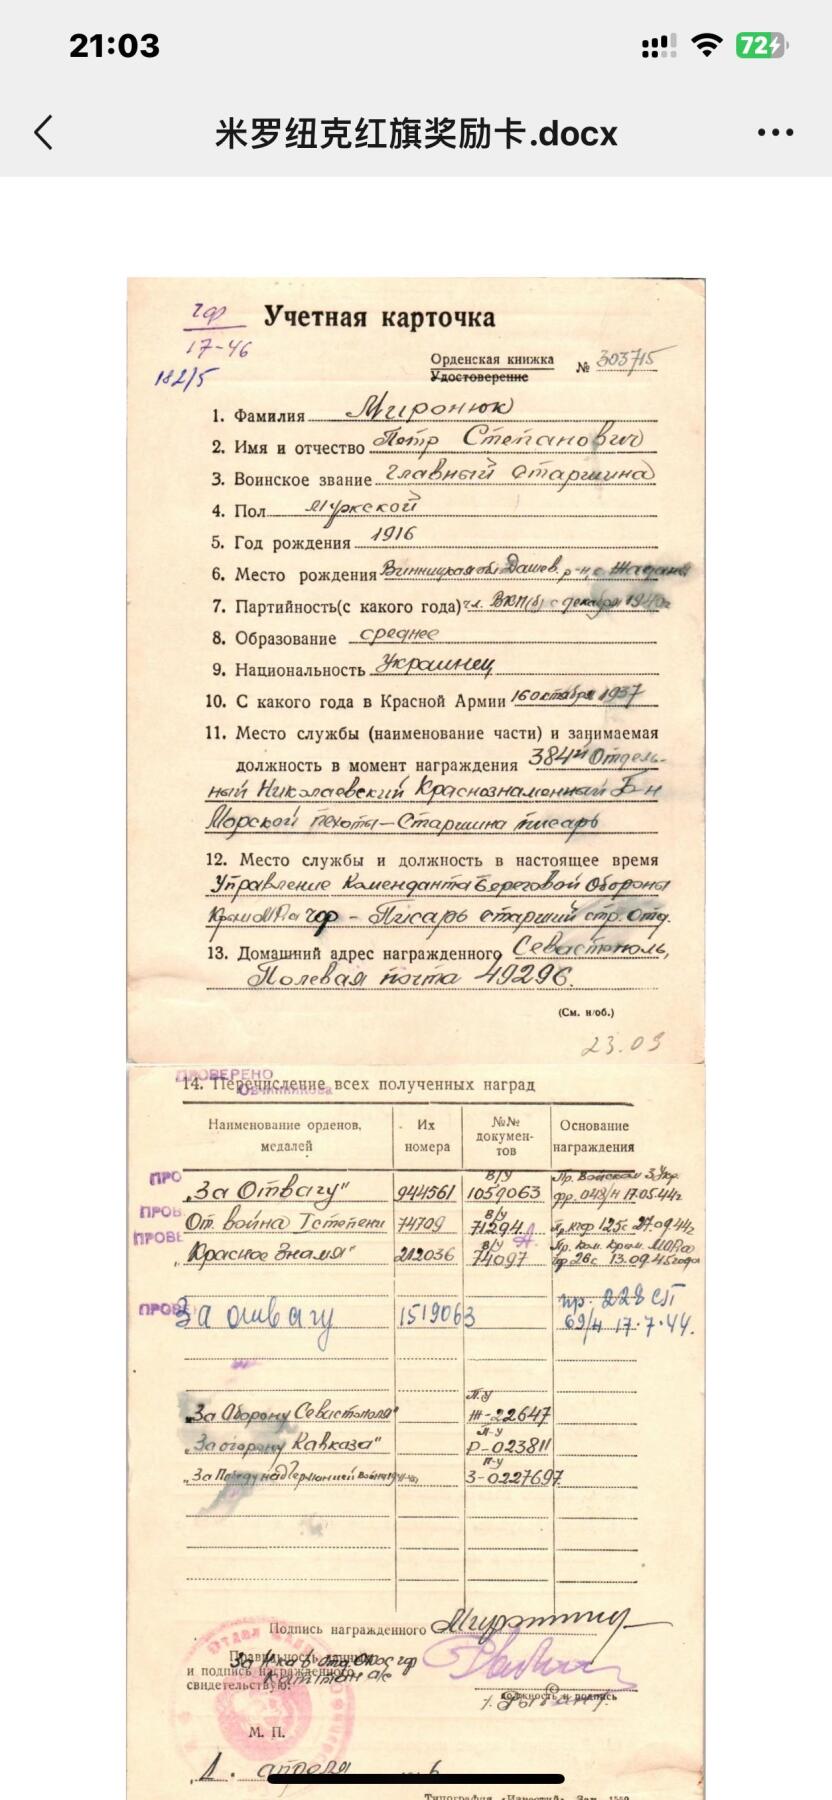 21:03
72
米罗纽克红旗奖励卡.docx
чф
17-46
182/5
Учетная карточка
Орденская книжка № 303715
Удостоверение
1. Фамилия Миронюк
2. Имя и отчество Петр Степанович
3. Воинское звание главный старшина
4. Пол мужской
5. Год рождения 1916
6. Место рождения Винницкая обл Дашев. р-н, с
7. Партийность(с какого года) чл. ВКП(б) с декабря 1940г
8. Образование среднее
9. Национальность Украинец
10. С какого года в Красной Армии 16 октября 1937
11. Место службы (наименование части) и занимаемая
должность в момент награждения 384й Отдель-
ный Николаевский Краснознаменный Б-н
Морской пехоты-Старшина писарь
12. Место службы и должность в настоящее время
Управление Коменданта Береговой Обороны
чф - Писарь старший стр. отд.
13. Домашний адрес награжденного Севастополь,
Полевая почта 49296.
(См. н/об.)
23.09
ПРОВЕРЕНО
Овчинникова
14. Перечисление всех полученных наград
Наименование орденов, медалей Их номера №№ докумен-тов Основание награждения
ПРО
„За Отвагу" 944561 В/У 1059063 Пр. Войскам 3 Укр. фр. 048/н 17.05.44г
ПРОВ
От. война I степени 74709 В/У 71294 Пр. кчф 125с 27.09.44г
ПРОВЕ
„Красное Знамя" 212036 В/У 74097 Пр. Ком. Крым. МОРа чф 26с 13.09.45года
ПРОВЕ
За отвагу 1519063 пр. 228 СП
69/н 17.7.44.
„За Оборону Севастополя" П.У Ж-22647
„За оборону Кавказа" П-У Р-023811
„За Победу над Германией П-У З-0227697
Подпись награжденного
Правильность данных
и подпись награжденного
свидетельствую:
Капитан а/с
должность и подпись
М. П.
„1. апреля 6
Типография «Известий» Зак.